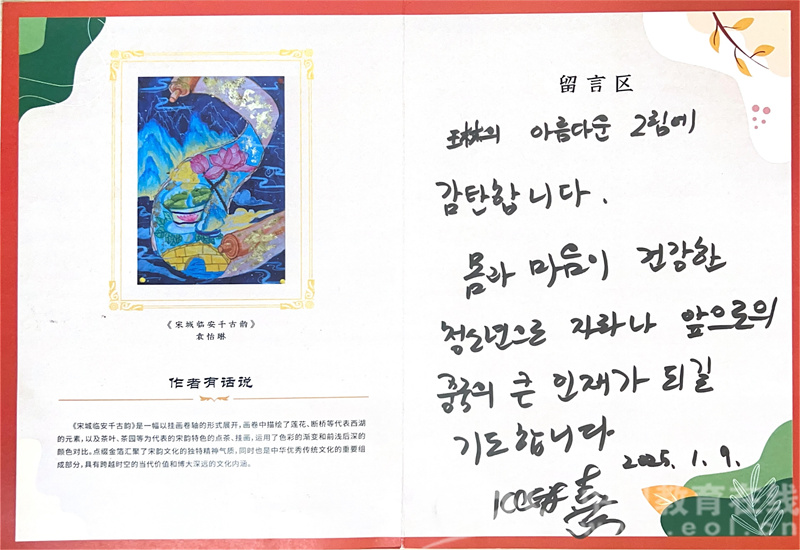 《宋城临安千古韵》
袁怡琳
作者有话说
《宋城临安千古韵》是一幅以挂画卷轴的形式展开,画卷中描绘了莲花、断桥等代表西湖
的元素,以及茶叶、茶园等为代表的宋韵特色的点茶、挂画,运用了色彩的渐变和前浅后深的
颜色对比。点缀金箔汇聚了宋韵文化的独特精神气质,同时也是中华优秀传统文化的重要组
成部分,具有跨越时空的当代价值和博大深远的文化内涵。
留言区
의 아름다운 그림에
감탄합니다.
몸과 마음이 건강한
청소년으로 자라나 앞으로의
중국의 큰 인재가 되길
기도합니다
2025.1.9.
教育在线
eol.cn